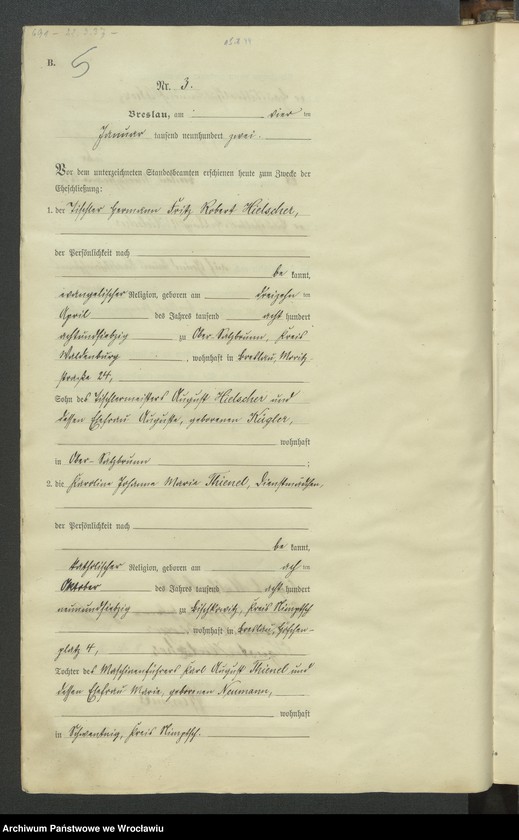 B. 5
Nr. 3.
Breslau, am vier ten
Januar tausend neunhundert zwei.
Vor dem unterzeichneten Standesbeamten erschienen heute zum Zwecke der
Eheschließung:
1. der Tischler Hermann Fritz Robert Hielscher,
der Persönlichkeit nach
be kannt,
evangelischer Religion, geboren am dreizehn ten
April des Jahres tausend acht hundert
achtundsiebzig zu Ober-Salzbrunn, Kreis
Waldenburg, wohnhaft in Breslau, Moritz-
straße 24,
Sohn des Tischlermeisters August Hielscher und
dessen Ehefrau Auguste, geborenen Kügler,
wohnhaft
in Ober-Salzbrunn ;
2. die Karoline Johanna Maria Thienel, Dienstmädchen,
der Persönlichkeit nach
be kannt,
katholischer Religion, geboren am ach ten
Oktober des Jahres tausend acht hundert
neunundsiebzig zu Bischkowitz, Kreis Nimptsch
wohnhaft in Breslau,
platz 4,
Tochter des Maschinenführers Karl August Thienel und
dessen Ehefrau Maria, geborenen Neumann,
wohnhaft
in Schwentnig, Kreis Nimptsch.
Archiwum Państwowe we Wrocławiu